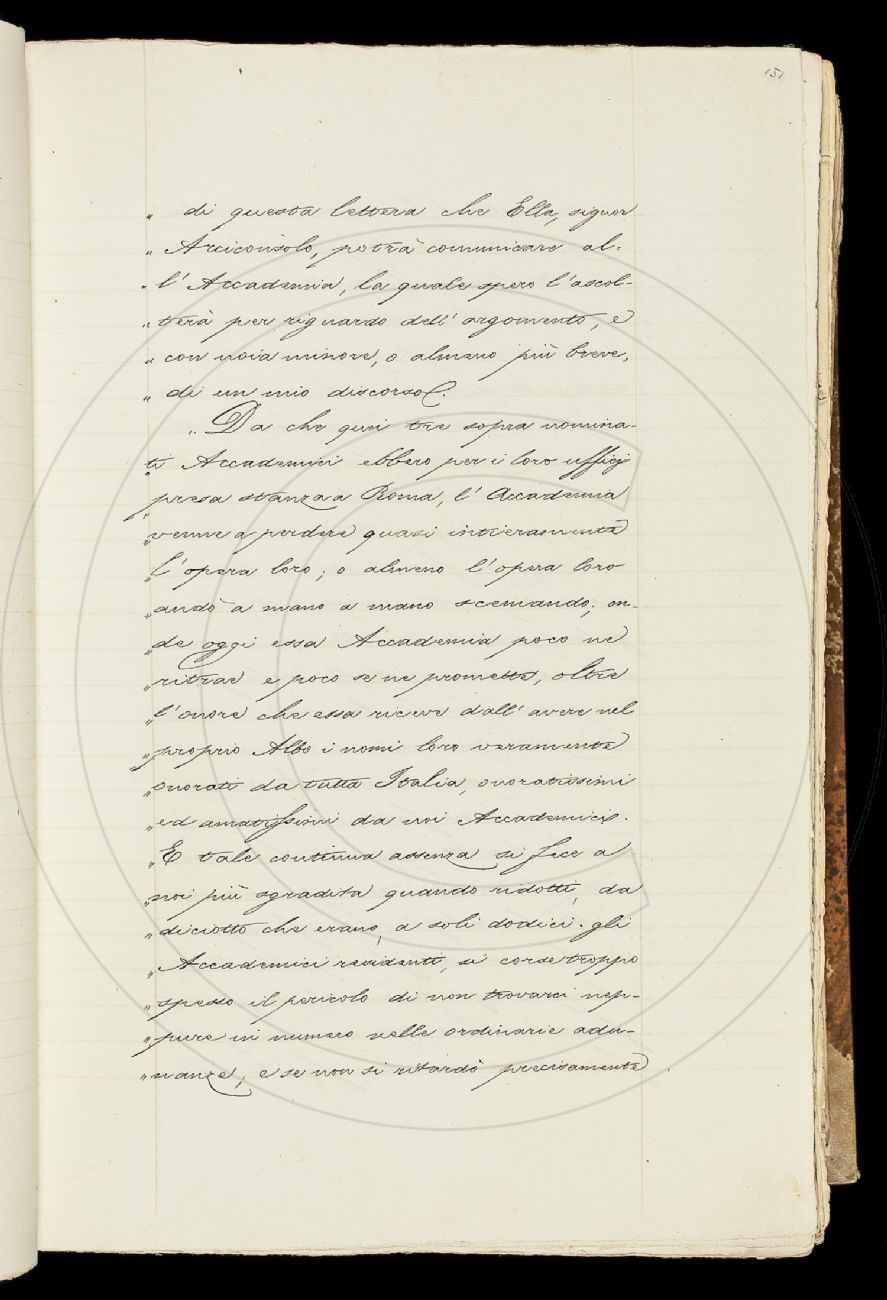 151
„ di questa lettera che Ella, signor
„ Arciconsolo, potrà comunicare al-
„ l' Accademia, la quale spero l'ascol-
„ terà per riguardo dell' argomento, e
„ con noia minore, o almeno più breve,
„ di un mio discorso.
„ Da che quei tre sopra nomina-
„ ti Accademici ebbero per i loro ufficj
„ presa stanza a Roma, l' Accademia
„ venne a perdere quasi intieramente
„ l'opera loro; o almeno l'opera loro
„ andò a mano a mano scemando; on-
„ de oggi essa Accademia poco ne
„ ritrae e poco se ne promette, oltre
„ l'onore che essa riceve dall' avere nel
„ proprio Albo i nomi loro veramente
„ onorati da tutta Italia, onoratissimi
„ ed amatissimi da noi Accademici.
„ E tale continua assenza si fece a
„ noi più sgradita quando ridotti, da
„ diciotto che erano, a soli dodici gli
„ Accademici residenti, si corse troppo
„ spesso il pericolo di non trovarci nep-
„ pure in numero nelle ordinarie adu-
„ nanze; e se non si ritardò precisamente